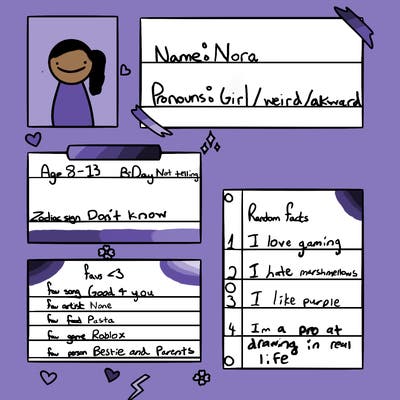 Name: Nora
Pronouns: Girl/weird/akward
Age 8-13 B-Day Not telling
Zodiac sign Don't know
favs <3
fav song Good 4 you
fav artist None
fav food Pasta
fav game Roblox
fav person Bestie and Parents
Random facts
1 I love gaming
2 I hate marshmellows
3 I like purple
4 Im a pro at
drawing in real
life